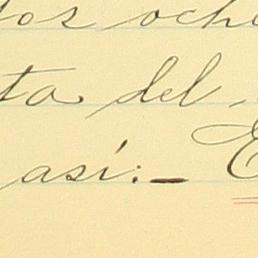 tos ocho
ta del
así:— E